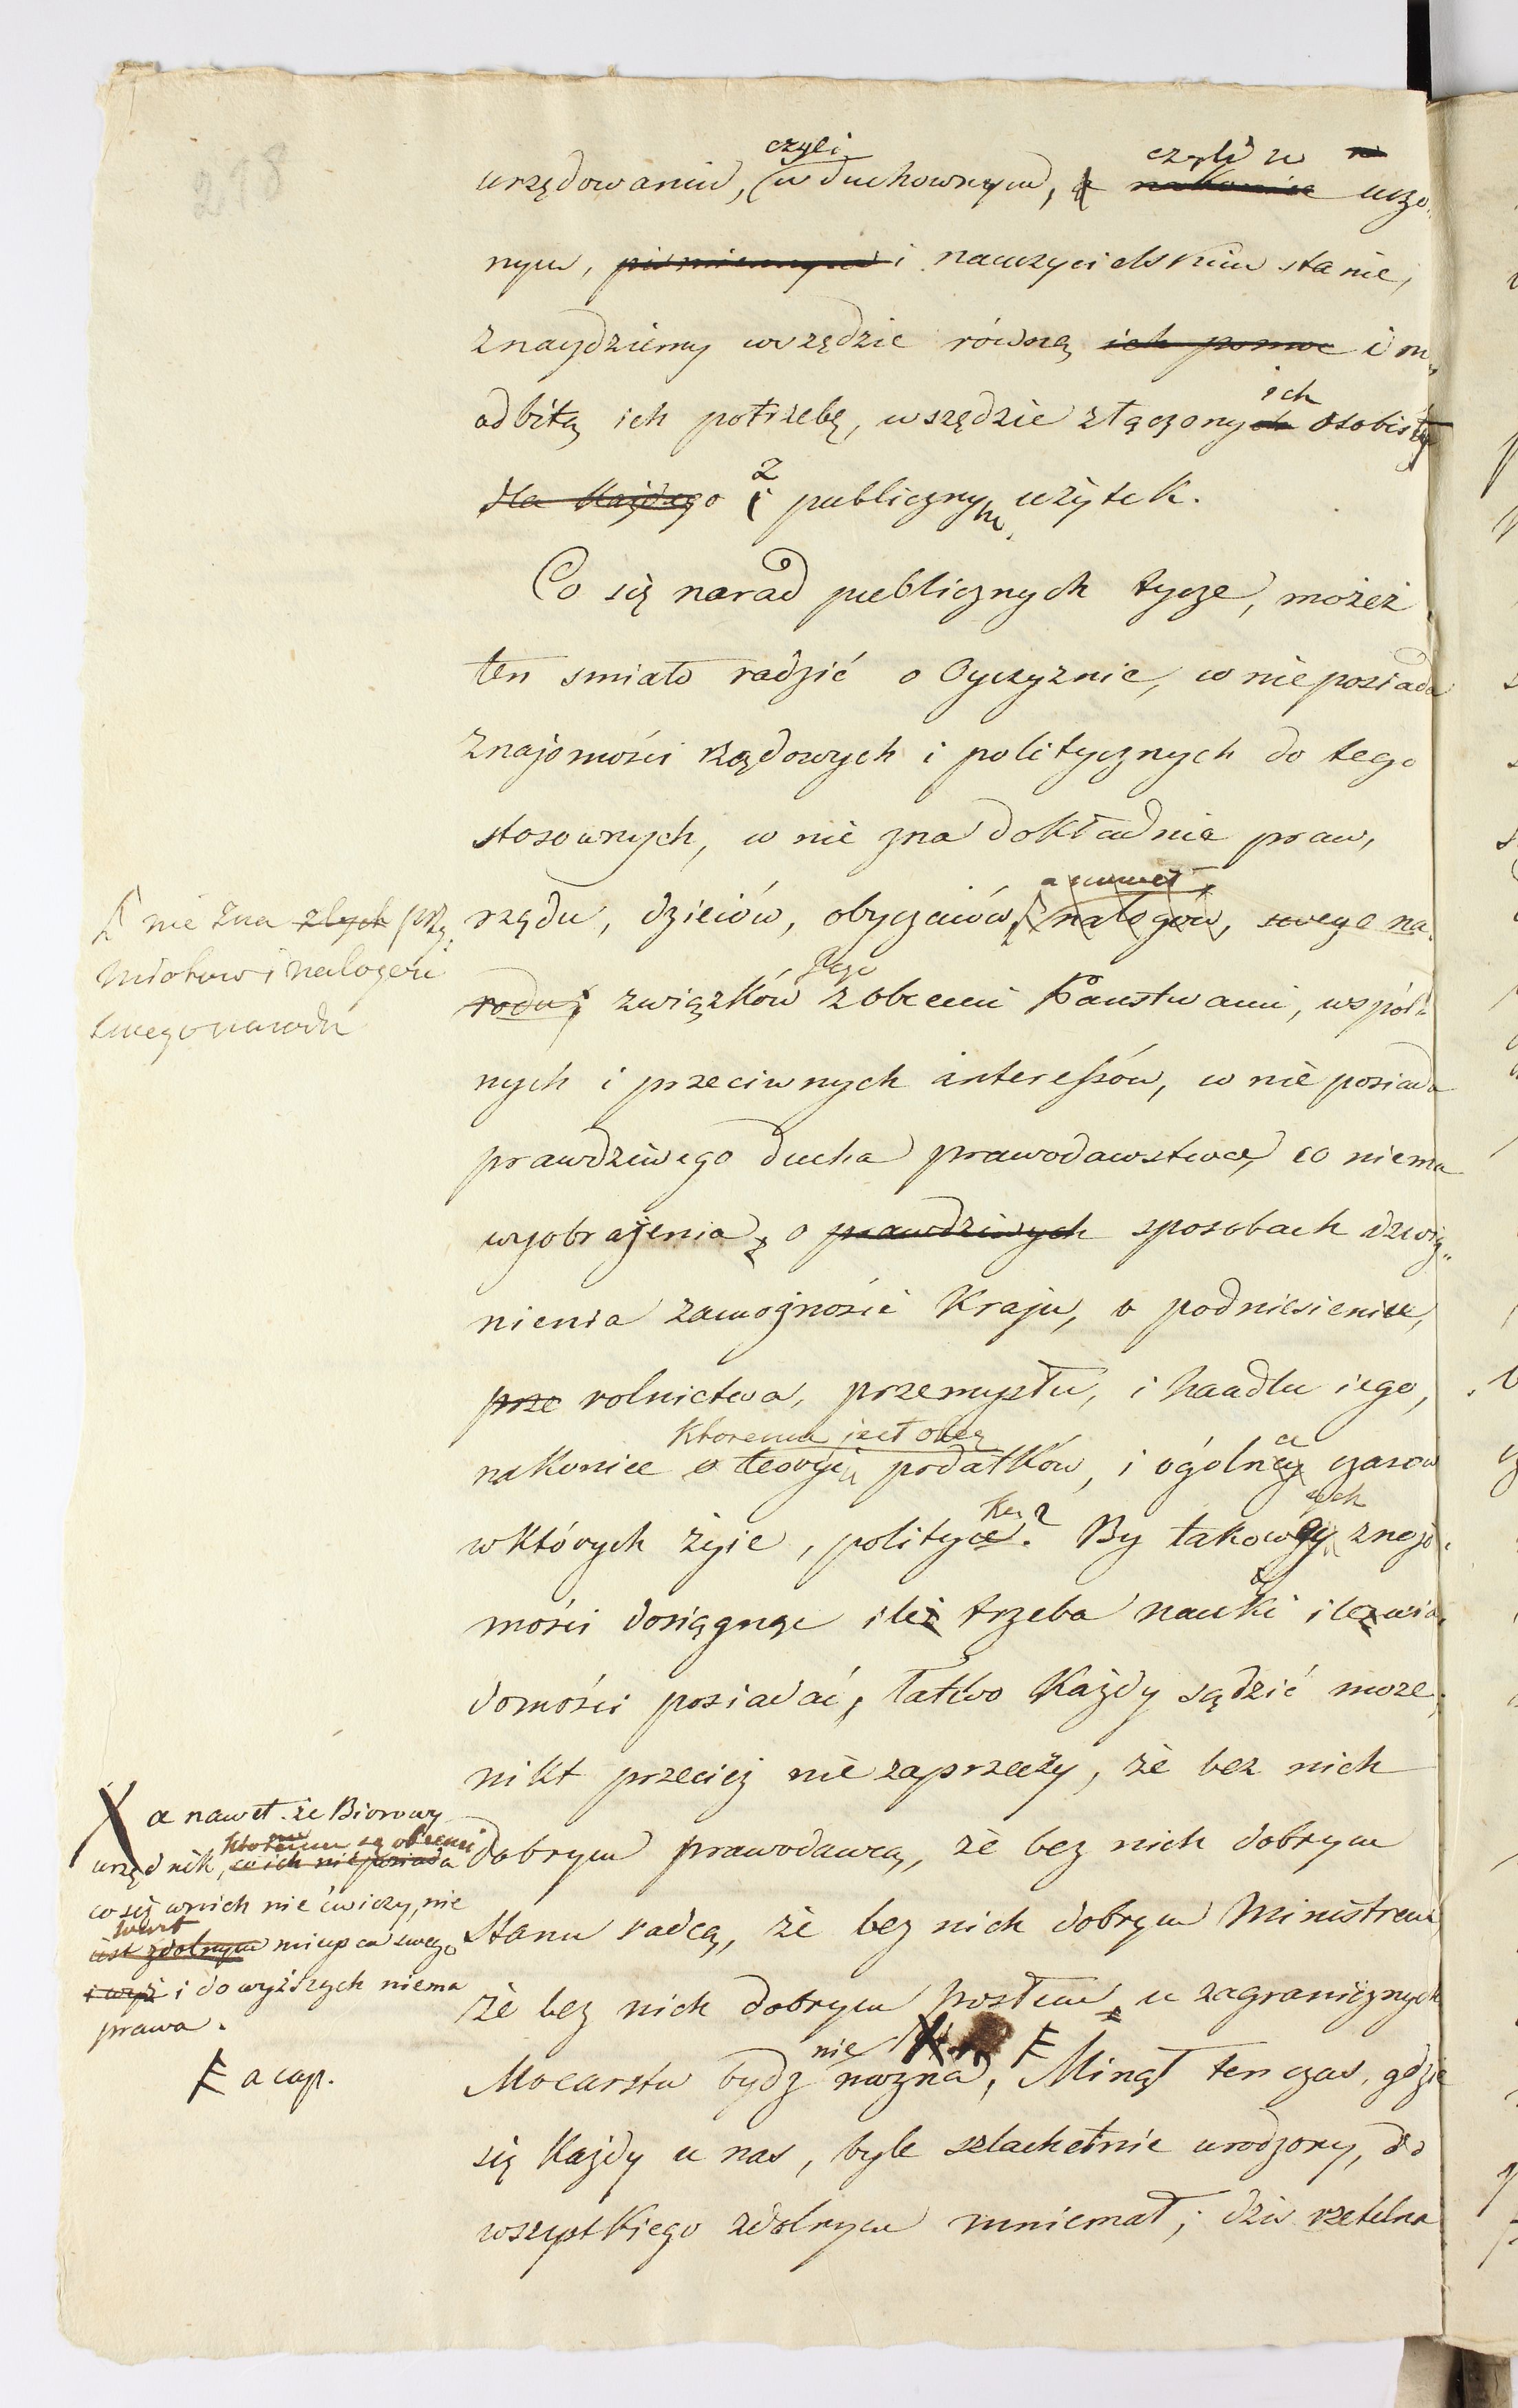 298
czyli czyli w
urzędowaniu, w duchownym, nakoniec uczo„
nym, piśmiennym i nauczycielskim stanie,
znaydziemy wszędzie równą ich pomoc i nie„
odbitą ich potrzebę, wszędzie złączony ich osobisty
dla każdego i z publicznym użytek.
Co się narad publicznych tycze, możeż
ten smiało radzić o Oyczyznie, co nie posiada
znajomości rządowych i politycznych do tego
stosownych, co nie zna dokładnie praw,
a nawet
rządu, dzieiów, obyczaiów, nałogów, swego na„
rodu, jego związków z obcemi Państwami, wspól„
nych i przeciwnych interessów, co nie posiada
prawdziwego ducha prawodawstwa, co niema
wyobrażenia o prawdziwych sposobach dzwig„
nienia zamożności Kraju, o podniesieniu,
prze rolnictwa, przemysłu, i handlu iego,
Ktoremu jest obcą
nakoniec o teoryi podatków, i ogólney czasow
w których żyie, polityce? By takowych znajo„
mości dosiągnąc ileż trzeba nauki ile wia„
domości posiadać, łatwo Każdy sądzić może,
nikt przecież nie zaprzeczy, że bez nich
dobrym prawodawcą, że bez nich dobrym
Stanu radcą, że bez nich dobrym Ministrem,
że bez nich dobrym posłem u zagranicznych
Mocarstw bydz nie można, Minął ten czas, gdzie
się każdy u nas, byle szlachetnie urodzony, do
wszystkiego zdolnym mniemał; dziś rzetelna
nie zna złych przy„
miotow i nałogów
swego narodu
X a nawet że Biorowy
ktoremu są obcemi
urzędnik, co ich nie posiada
co się w nich nie ćwiczy, nie
wart
iest zdolnym mieysca swego
i wyż i do wyższych niema
prawa.
a cap.